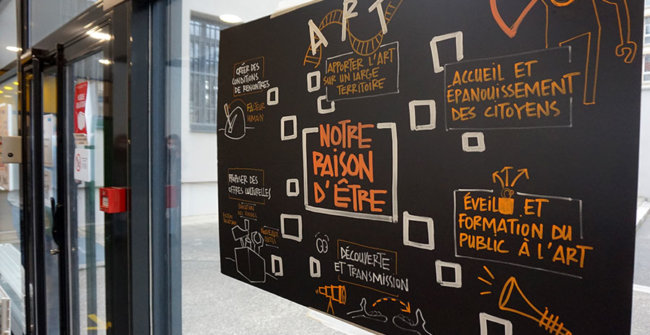 ART
CRÉER DES
CONDITIONS
DE RENCONTRES
FACTEUR
HUMAIN
APPORTER L'ART
SUR UN LARGE
TERRITOIRE
ACCUEIL ET
ÉPANOUISSEMENT
DES CITOYENS
NOTRE
RAISON
D'ÊTRE
DES
OFFRES CULTURELLES
ÉVEIL ET
FORMATION DU
PUBLIC À L'ART
DÉCOUVERTE
ET TRANSMISSION